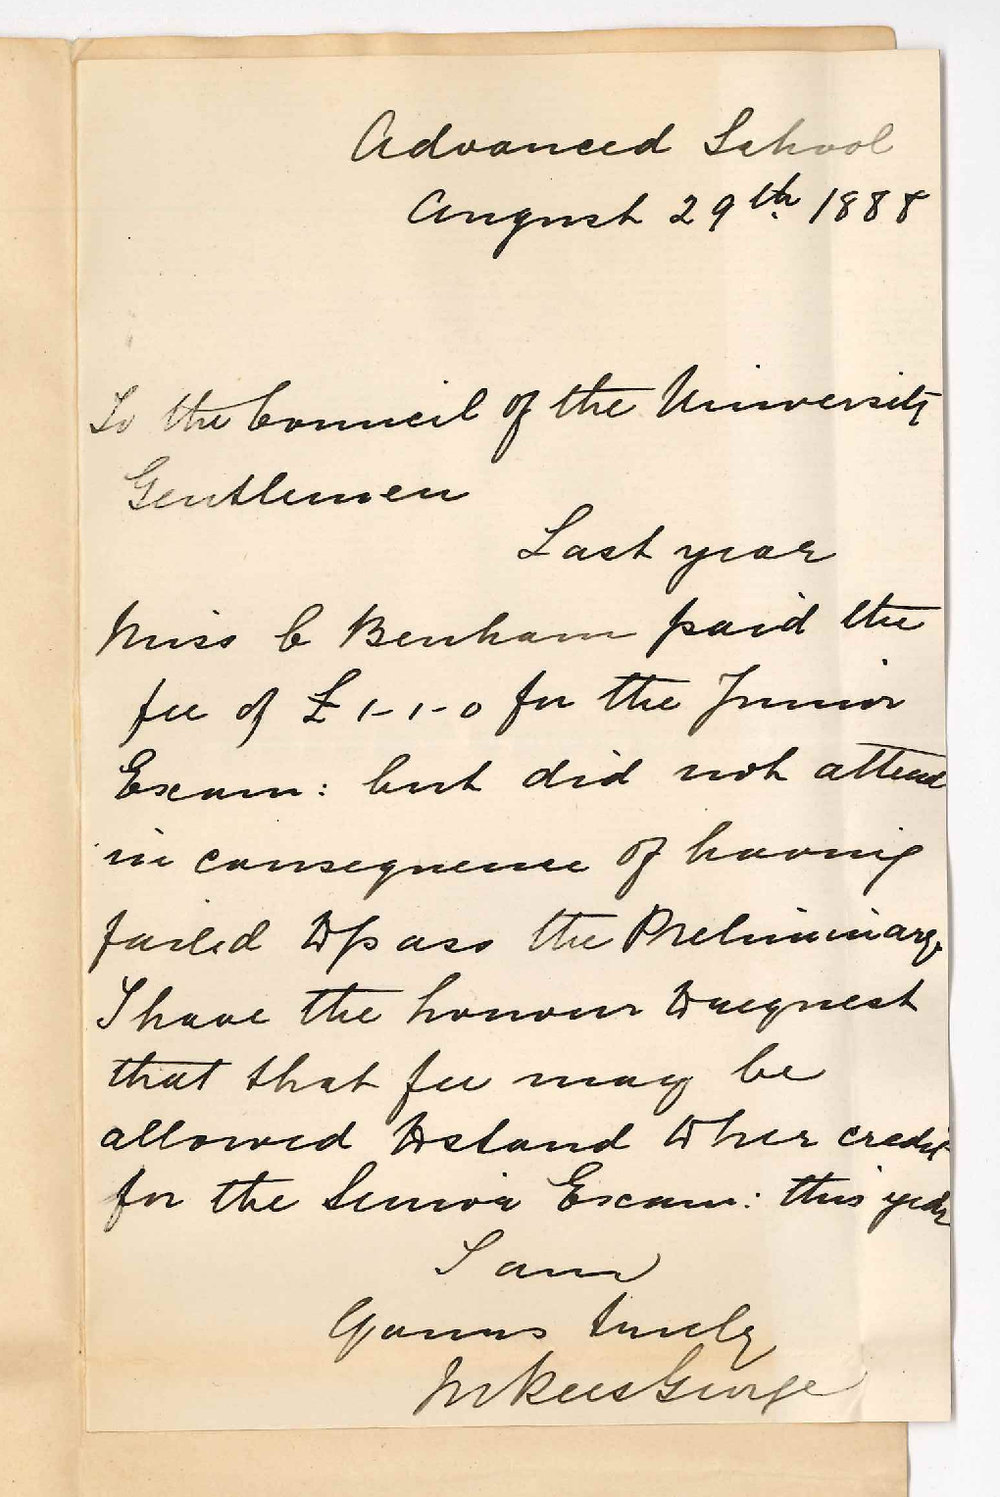 Advanced School
August 29th. 1888
To the Council of the University
Gentlemen
Last year
Miss C Benham paid the
fee of £1-1-0 for the Junior
Exam: but did not attend
in consequence of having
failed to pass the Preliminary.
I have the honour to request
that that fee may be
allowed to stand to her credit
for the Senior Exam: this year
I am
Yours truly
M Rees George